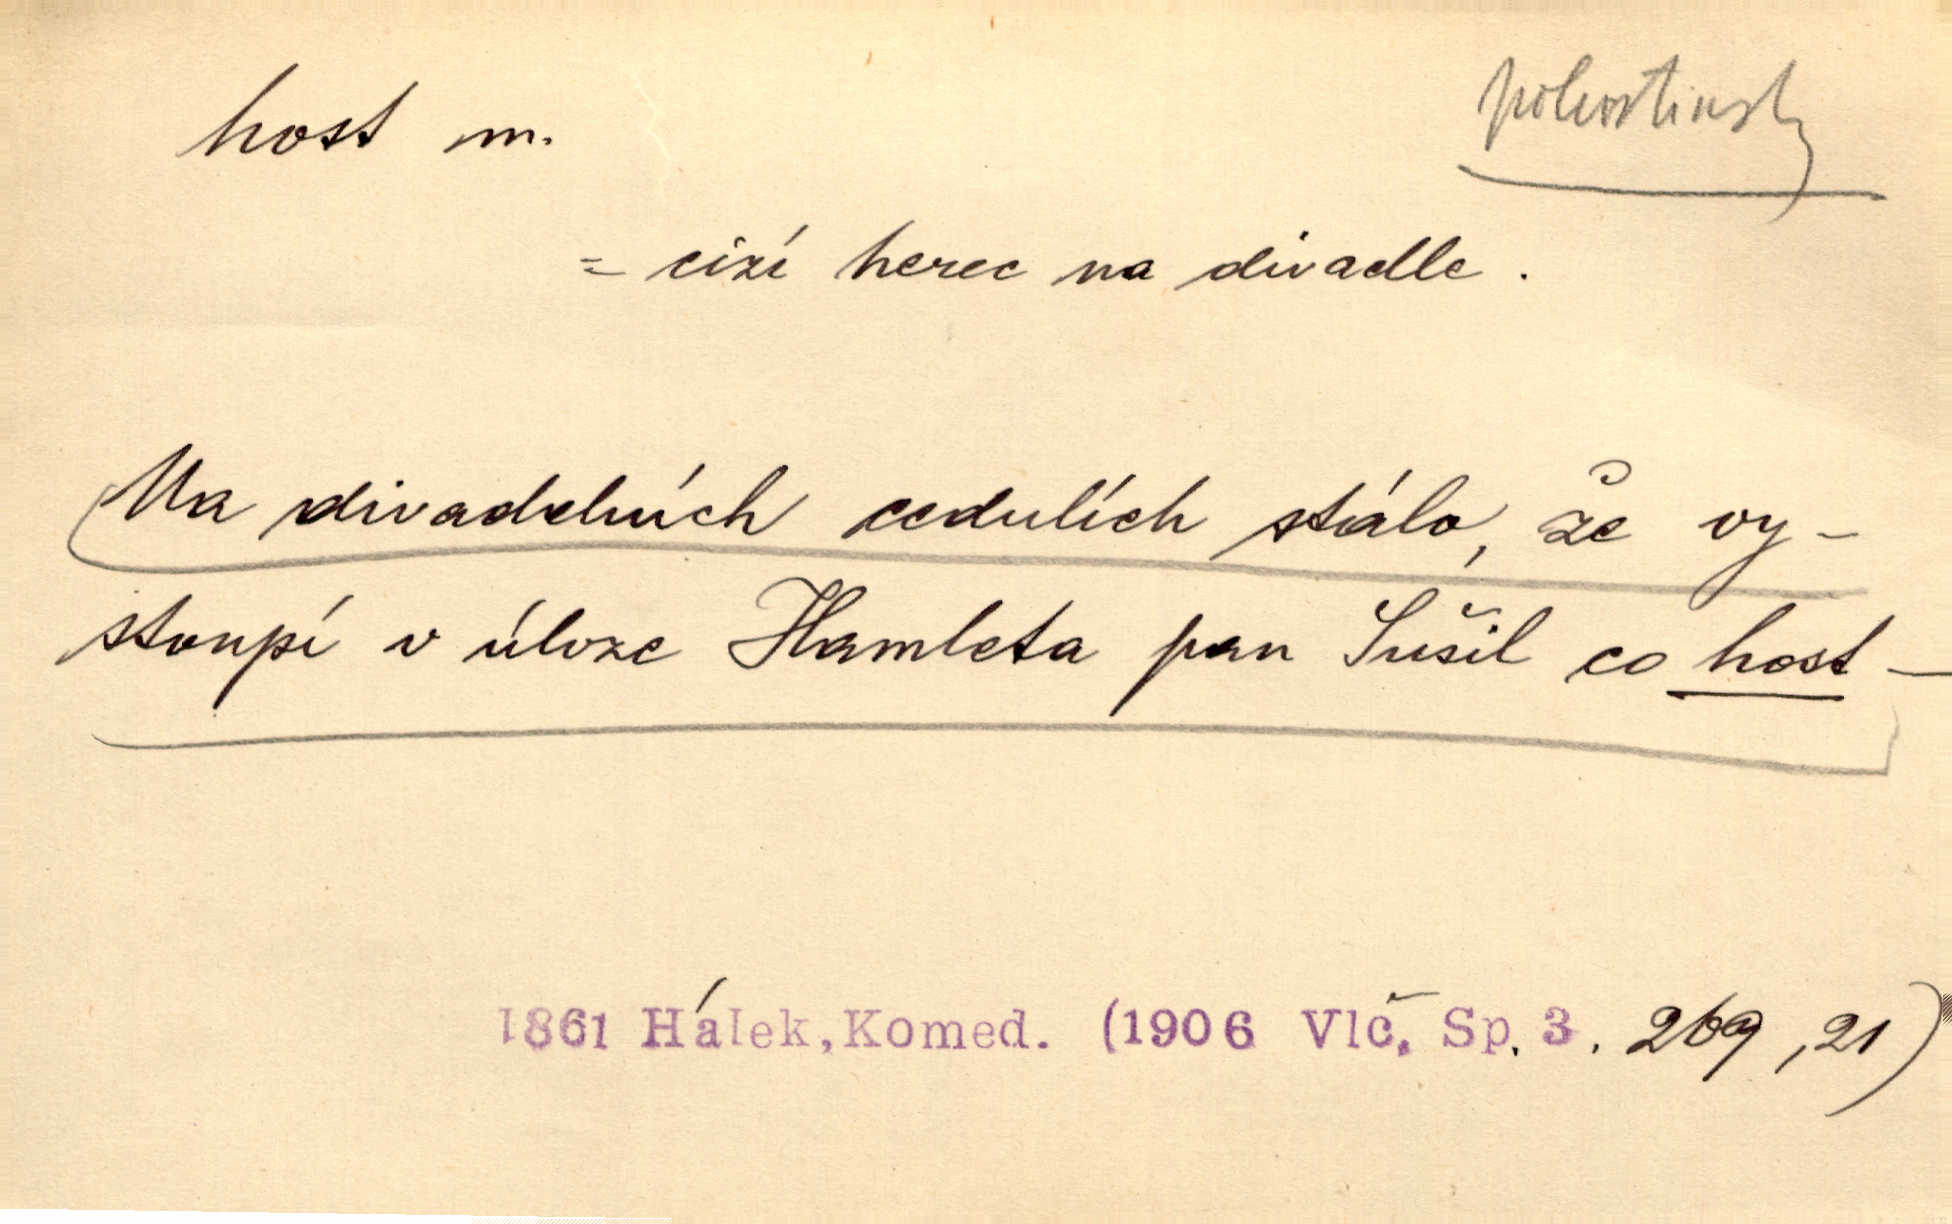 host m.
pohostinsky
= cizí herec na divadle.
Na divadelních cedulích stálo, že vy-
stoupí v úloze Hamleta pan Sušil co host –
1861 Hálek, Komed. (1906 Vlč. Sp. 3. 269, 21)